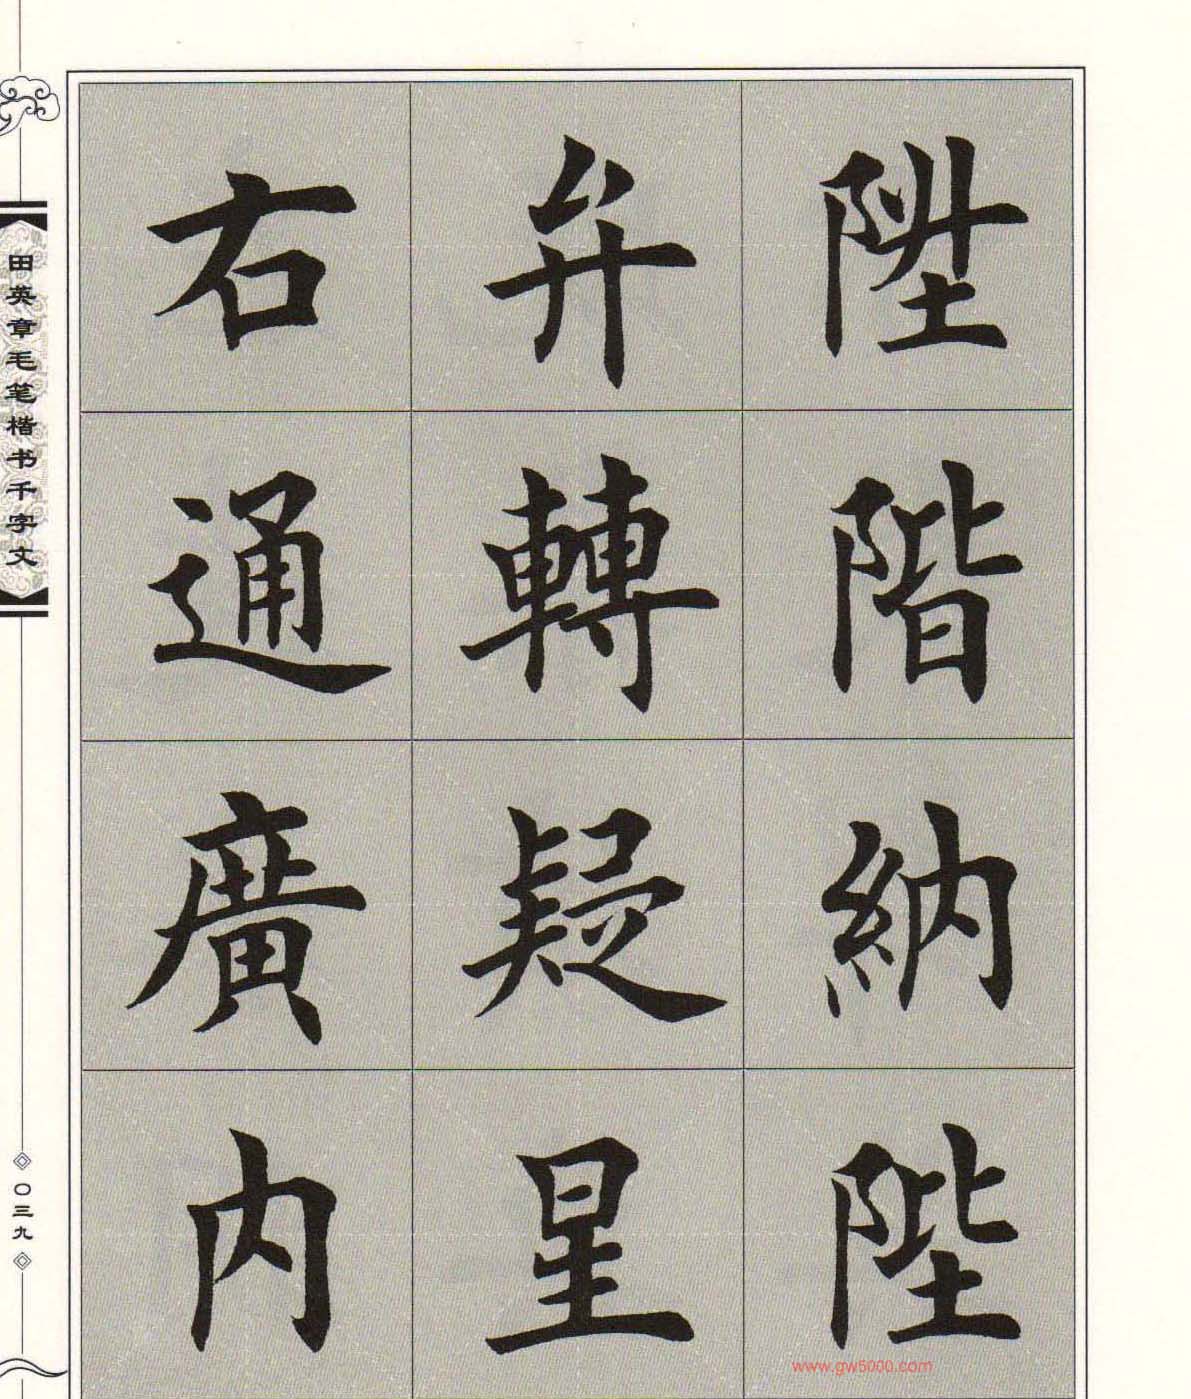 陞階納陛
弁轉疑星
右通廣内
田英章毛笔楷书千字文
〇三九
www.gw5000.com